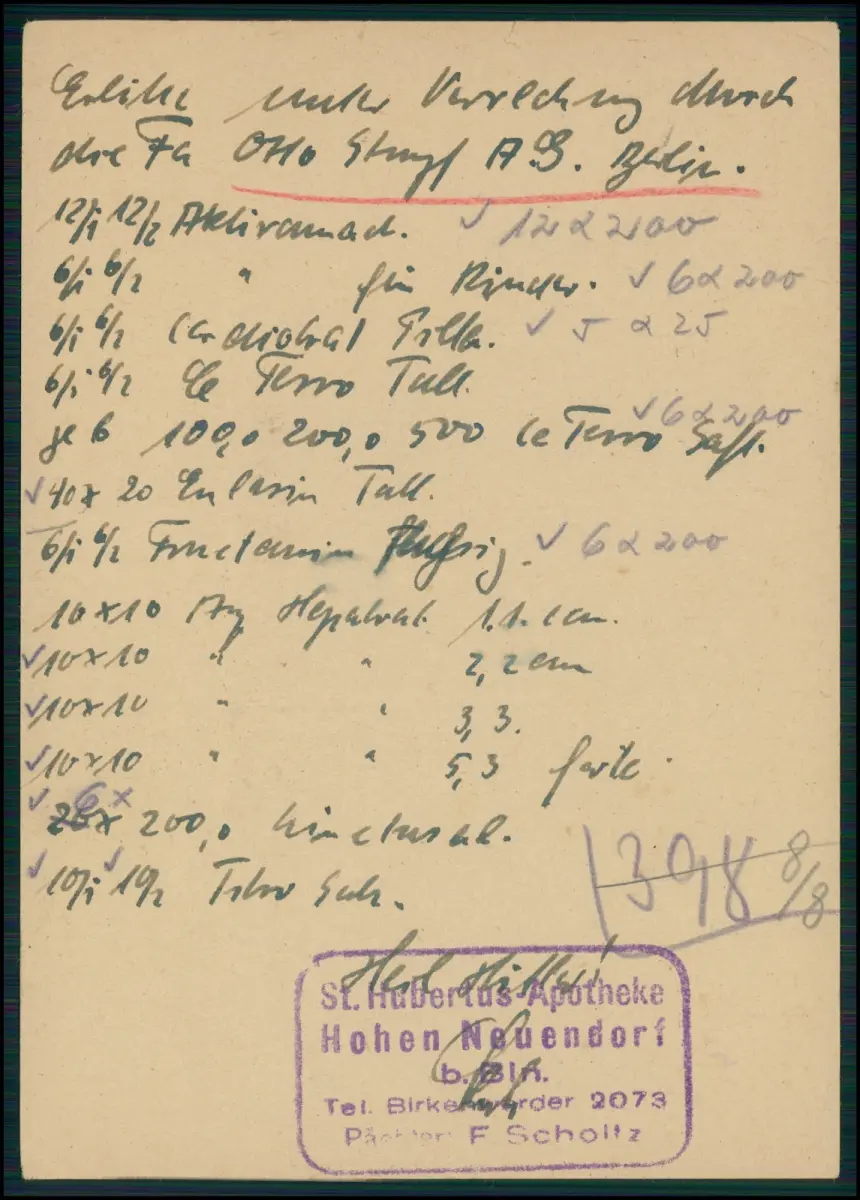 Erbitte unter Verrechnung durch
die Fa Otto Stumpf A.G. Berlin.
12/1 12/2 ✓ 12 a 200
6/1 6/2 " für Kinder. ✓ 6 a 200
6/1 6/2 Cardiobral ✓ 5 a 25
6/1 6/2 Ce Ferro Tall.
✓ 6 a 200
je 6 100,0 200,0 500 Ce Ferro Saft.
✓ 40 x 20 Tall.
6/1 6/2 flüssig. ✓ 6 a 200
10 x 10 Hepatrat 1,1 ccm.
✓ 10 x 10 " " 2,2 ccm
✓ 10 x 10 " " 3,3.
✓ 10 x 10 " " 5,3 forte.
✓ 6 x 200,0
✓ 10/1 ✓ 10/2 Salz.
398 8/8
Heil Hitler!
St. Hubertus-Apotheke
Hohen Neuendorf
b. Bln.
Tel. Birkenwerder 2073
Pächter: F Scholtz